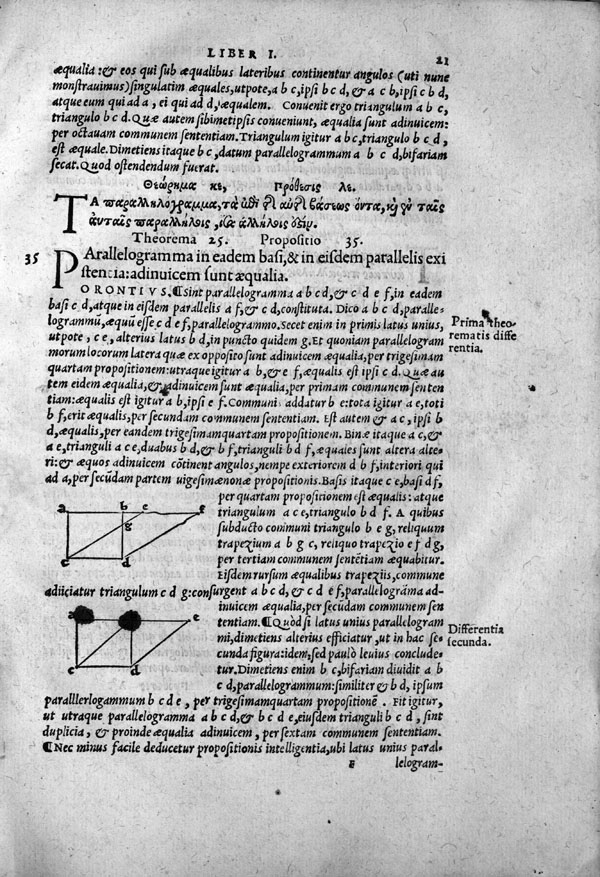 LIBER I. 21
æqualia: & eos qui sub æqualibus lateribus continentur angulos (uti nunc
monstrauimus) singulatim æquales, utpote, a b c, ipsi b c d, & a c b, ipsi c b d,
atque eum qui ad a, ei qui ad d, æqualem. Conuenit ergo triangulum a b c,
triangulo b c d. Quæ autem sibimetipsis conueniunt, æqualia sunt adinuicem:
per octauam communem sententiam. Triangulum igitur a b c, triangulo b c d,
est æquale. Dimetiens itaque b c, datum parallelogrammum a b c d, bifariam
secat. Quod ostendendum fuerat.
Θεώρημα κε, Πρόθεσις λε.
ΤΑ παραλληλόγραμμα, τὰ βάσεως ὄντα, ταῖς
παραλλήλοις, ἴσα ἀλλήλοις
Theorema 25. Propositio 35.
35 PArallelogramma in eadem basi, & in eisdem parallelis exi
stentia: adinuicem sunt æqualia.
ORONTIVS, ¶Sint parallelogramma a b c d, & c d e f, in eadem
basi c d, atque in eisdem parallelis a f, & c d, constituta. Dico a b c d, paralle-
logrammū, æquū esse c d e f, parallelogrammo. Secet enim in primis latus unius,
utpote, c e, alterius latus b d, in puncto quidem g. Et quoniam parallelogram
morum locorum latera quæ ex opposito sunt adinuicem æqualia, per trigesimam
quartam propositionem: utraque igitur a b, & e f, æqualis est ipsi c d. Quæ au
tem eidem æqualia, & adinuicem sunt æqualia, per primam communem senten
tiam: æqualis est igitur a b, ipsi e f. Communis addatur b e: tota igitur a e, toti
b f, erit æqualis, per secundam communem sententiam. Est autem & a c, ipsi b
d, æqualis, per eandem trigesimamquartam propositionem. Binæ itaque a c, &
a e, trianguli a c e, duabus b d, & b f, trianguli b d f, æquales sunt altera alte-
ri: & æquos adinuicem cōtinent angulos, nempe exteriorem d b f, interiori qui
ad a, per secūdam partem uigesimænonæ propositionis. Basis itaque c e, basi d f,
per quartam propositionem est æqualis: atque
triangulum a c e, triangulo b d f. A quibus
subducto communi triangulo b e g, reliquum
trapezium a b g c, reliquo trapezio e f d g,
per tertiam communem sentētiam æquabitur.
Eisdem rursum æqualibus trapeziis, communi
adiiciatur triangulum c d g: consurgent a b c d, & c d e f, parallelogrāma ad-
inuicem æqualia, per secūdam communem sen
tentiam. ¶Quod si latus unius parallelogram
mi, dimetiens alterius efficiatur, ut in hac se-
cunda figura: idem, sed paulò leuius conclude-
tur. Dimetiens enim b c, bifariam diuidit a b
c d, parallelogrammum: similiter & b d, ipsum
paralllerlogammum b c d e, per trigesimamquartam propositionē. Fit igitur,
ut utraque parallelogramma a b c d, & b c d e, eiusdem trianguli b c d, sint
duplicia, & proinde æqualia adinuicem, per sextam communem sententiam.
¶Nec minus facile deducetur propositionis intelligentia, ubi latus unius paral-
F lelogram-
Prima theo-
rematis diffe
rentia.
Differentia
secunda.
a b e f
g
c d
e
c d